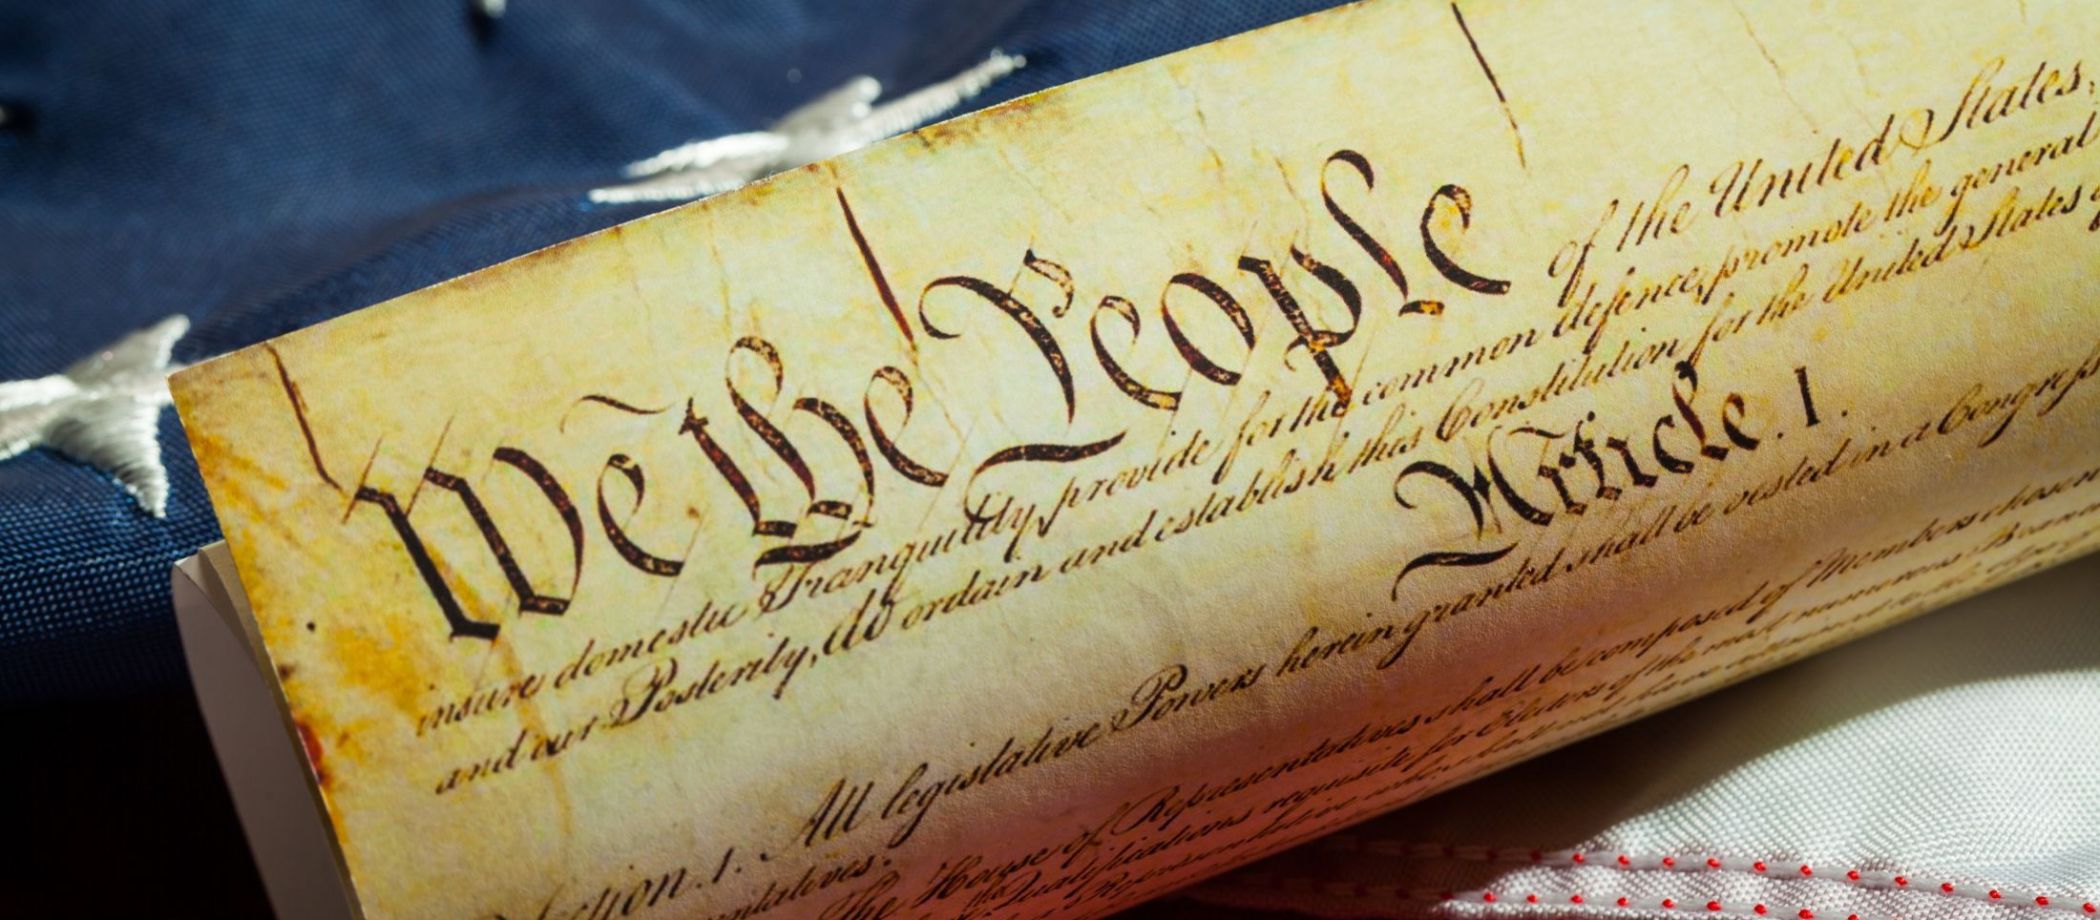 We the People of the United States,
insure domestic Tranquility, provide for the common defence, promote the general
and our Posterity, do ordain and establish this Constitution for the United States
Article. I.
Section. 1. All legislative Powers herein granted shall be vested in a Congress
entatives.
The House of Representatives shall be composed of Members chosen
Qualifications requisite for Electors of the most numerous Bran